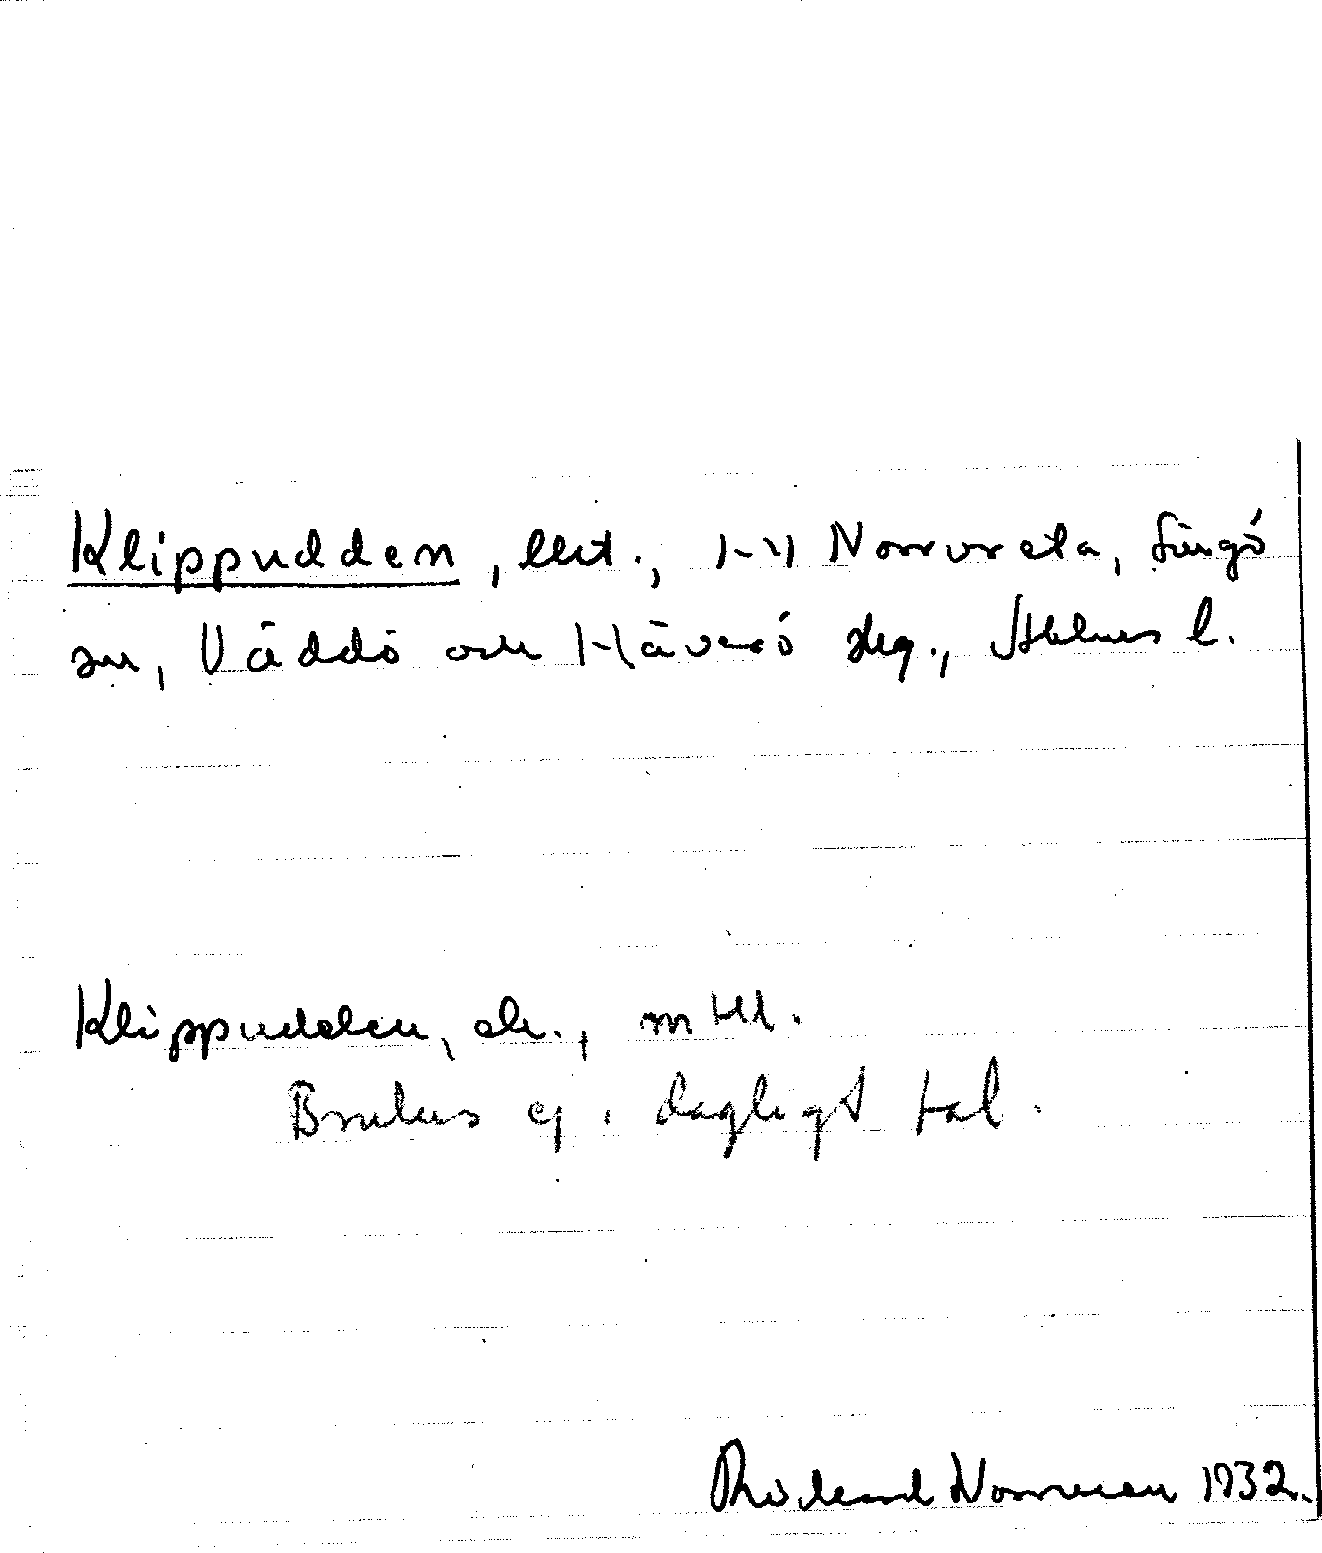 Klippudden, , Norrvreta, Singö
sn, Väddö och Häverö skg., Sthlms l.
Klippudden, ek., mtbl.
Brukas ej i dagligt tal.
Norrman 1932.